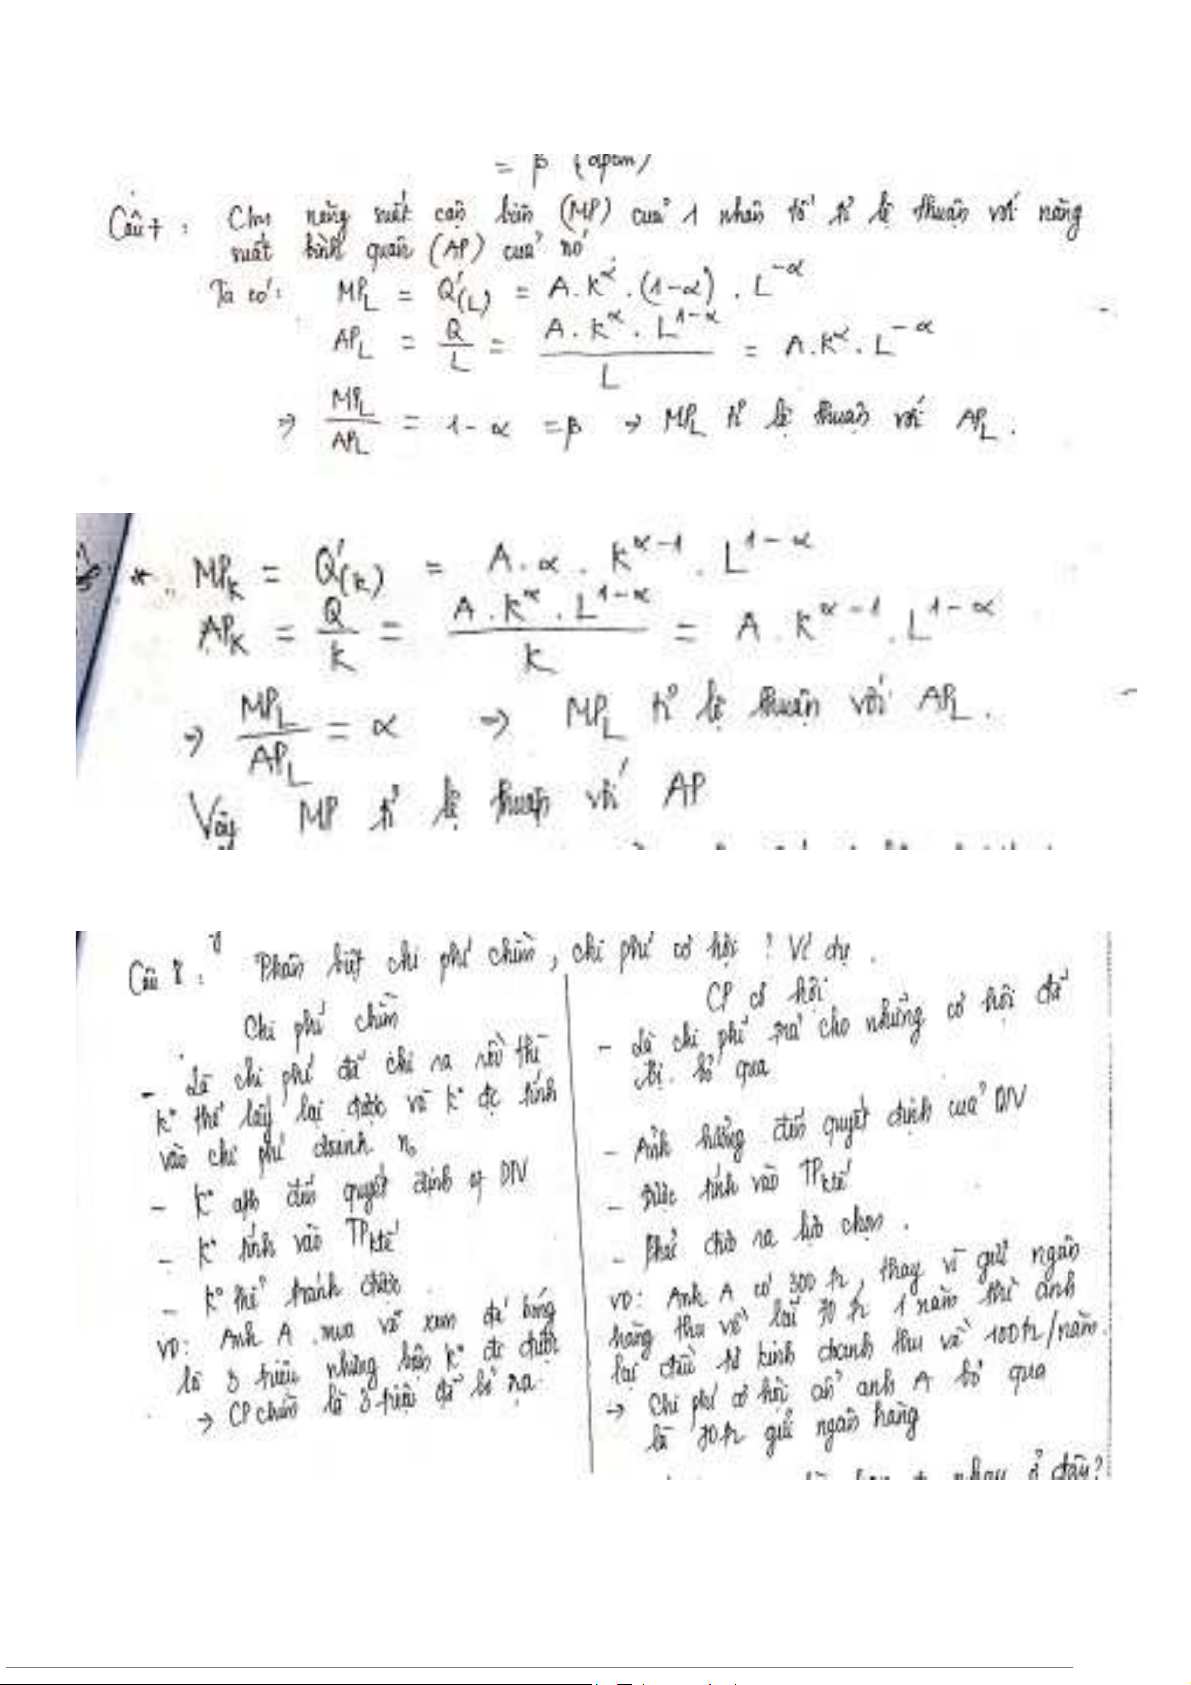 = β (đpcm)
Câu 7 : Cm năng suất cận biên (MP) của 1 nhân tố tỉ lệ thuận với năng
suất bình quân (AP) của nó.
Ta có: MP_L = Q'(L) = A.K^α . (1-α) . L^-α
AP_L = Q/L = (A.K^α . L^1-α)/L = A.K^α . L^-α
⇒ MP_L/AP_L = 1-α = β ⇒ MP_L tỉ lệ thuận với AP_L .
* MP_K = Q'(K) = A.α . K^α-1 . L^1-α
AP_K = Q/K = (A.K^α . L^1-α)/K = A . K^α-1 . L^1-α
⇒ MP_L/AP_L = α ⇒ MP_L tỉ lệ thuận với AP_L .
Vậy MP tỉ lệ thuận với AP
Câu 8 : Phân biệt chi phí chìm, chi phí cơ hội ? Ví dụ .
Chi phí chìm
- Là chi phí đã chi ra rồi thì
k° thể lấy lại được và k° đc tính
vào chi phí doanh n°
- K° ảh đến quyết định of DN
- K° tính vào TP ktế
- K° thể tránh được
VD: Anh A mua vé xem đá bóng
là 3 triệu nhưng bận k° đi được
→ CP chìm là 3 triệu đã bỏ ra.
CP cơ hội
- Là chi phí trả cho những cơ hội đã
bị bỏ qua
- Ảnh hưởng đến quyết định của DN
- Được tính vào TP ktế
- Phải đưa ra lựa chọn .
VD: Anh A có 300 tr, thay vì gửi ngân
hàng thu về lãi 70 tr 1 năm thì anh
lại đầu tư kinh doanh thu về 100tr/năm.
→ Chi phí cơ hội anh A bỏ qua
là 70tr gửi ngân hàng
nhau ở đâu?